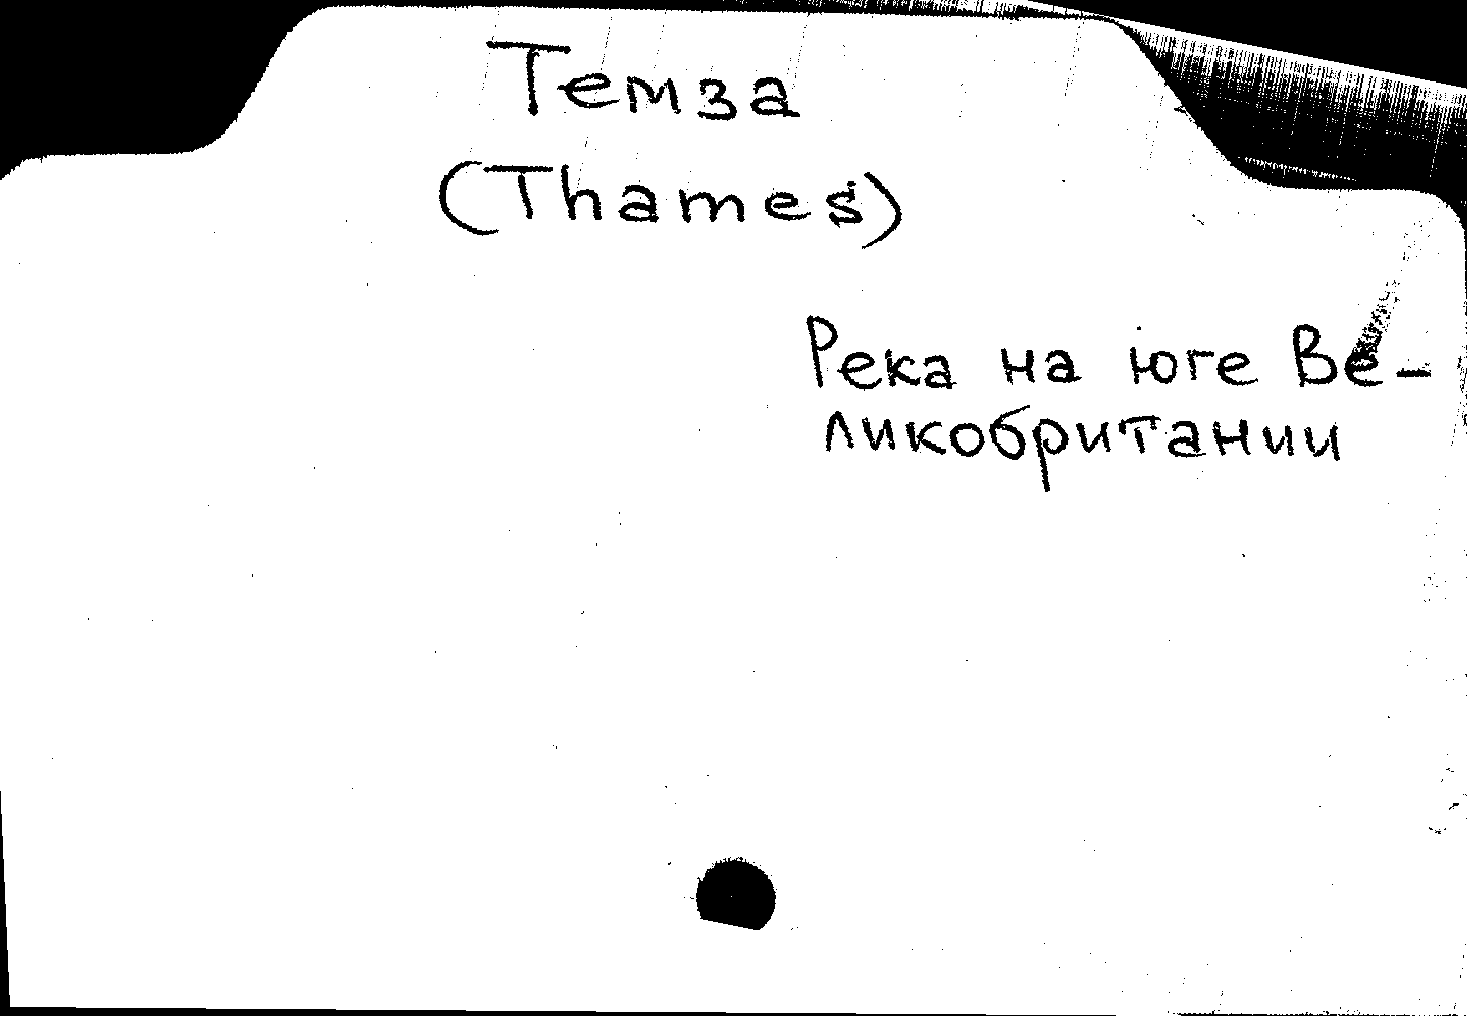 Темза
(Thames)
Река на юге Ве-
ликобритании